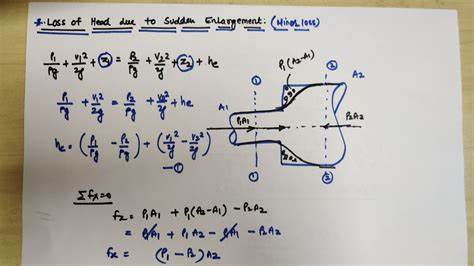 Loss of Head due to Sudden Enlargement: (Minor loss)
P1/ρg + V1²/2g + z1 = P2/ρg + V2²/2g + z2 + he
P1/ρg + V1²/2g = P2/ρg + V2²/2g + he
he = (P1/ρg - P2/ρg) + (V1²/2g - V2²/2g)
—①
P1(A2-A1)
①
②
A1
A2
P1A1
P2A2
①
②
Σfx=0
fx = P1A1 + P1(A2-A1) - P2A2
= P1A1 + P1A2 - P1A1 - P2A2
fx = (P1 - P2) A2